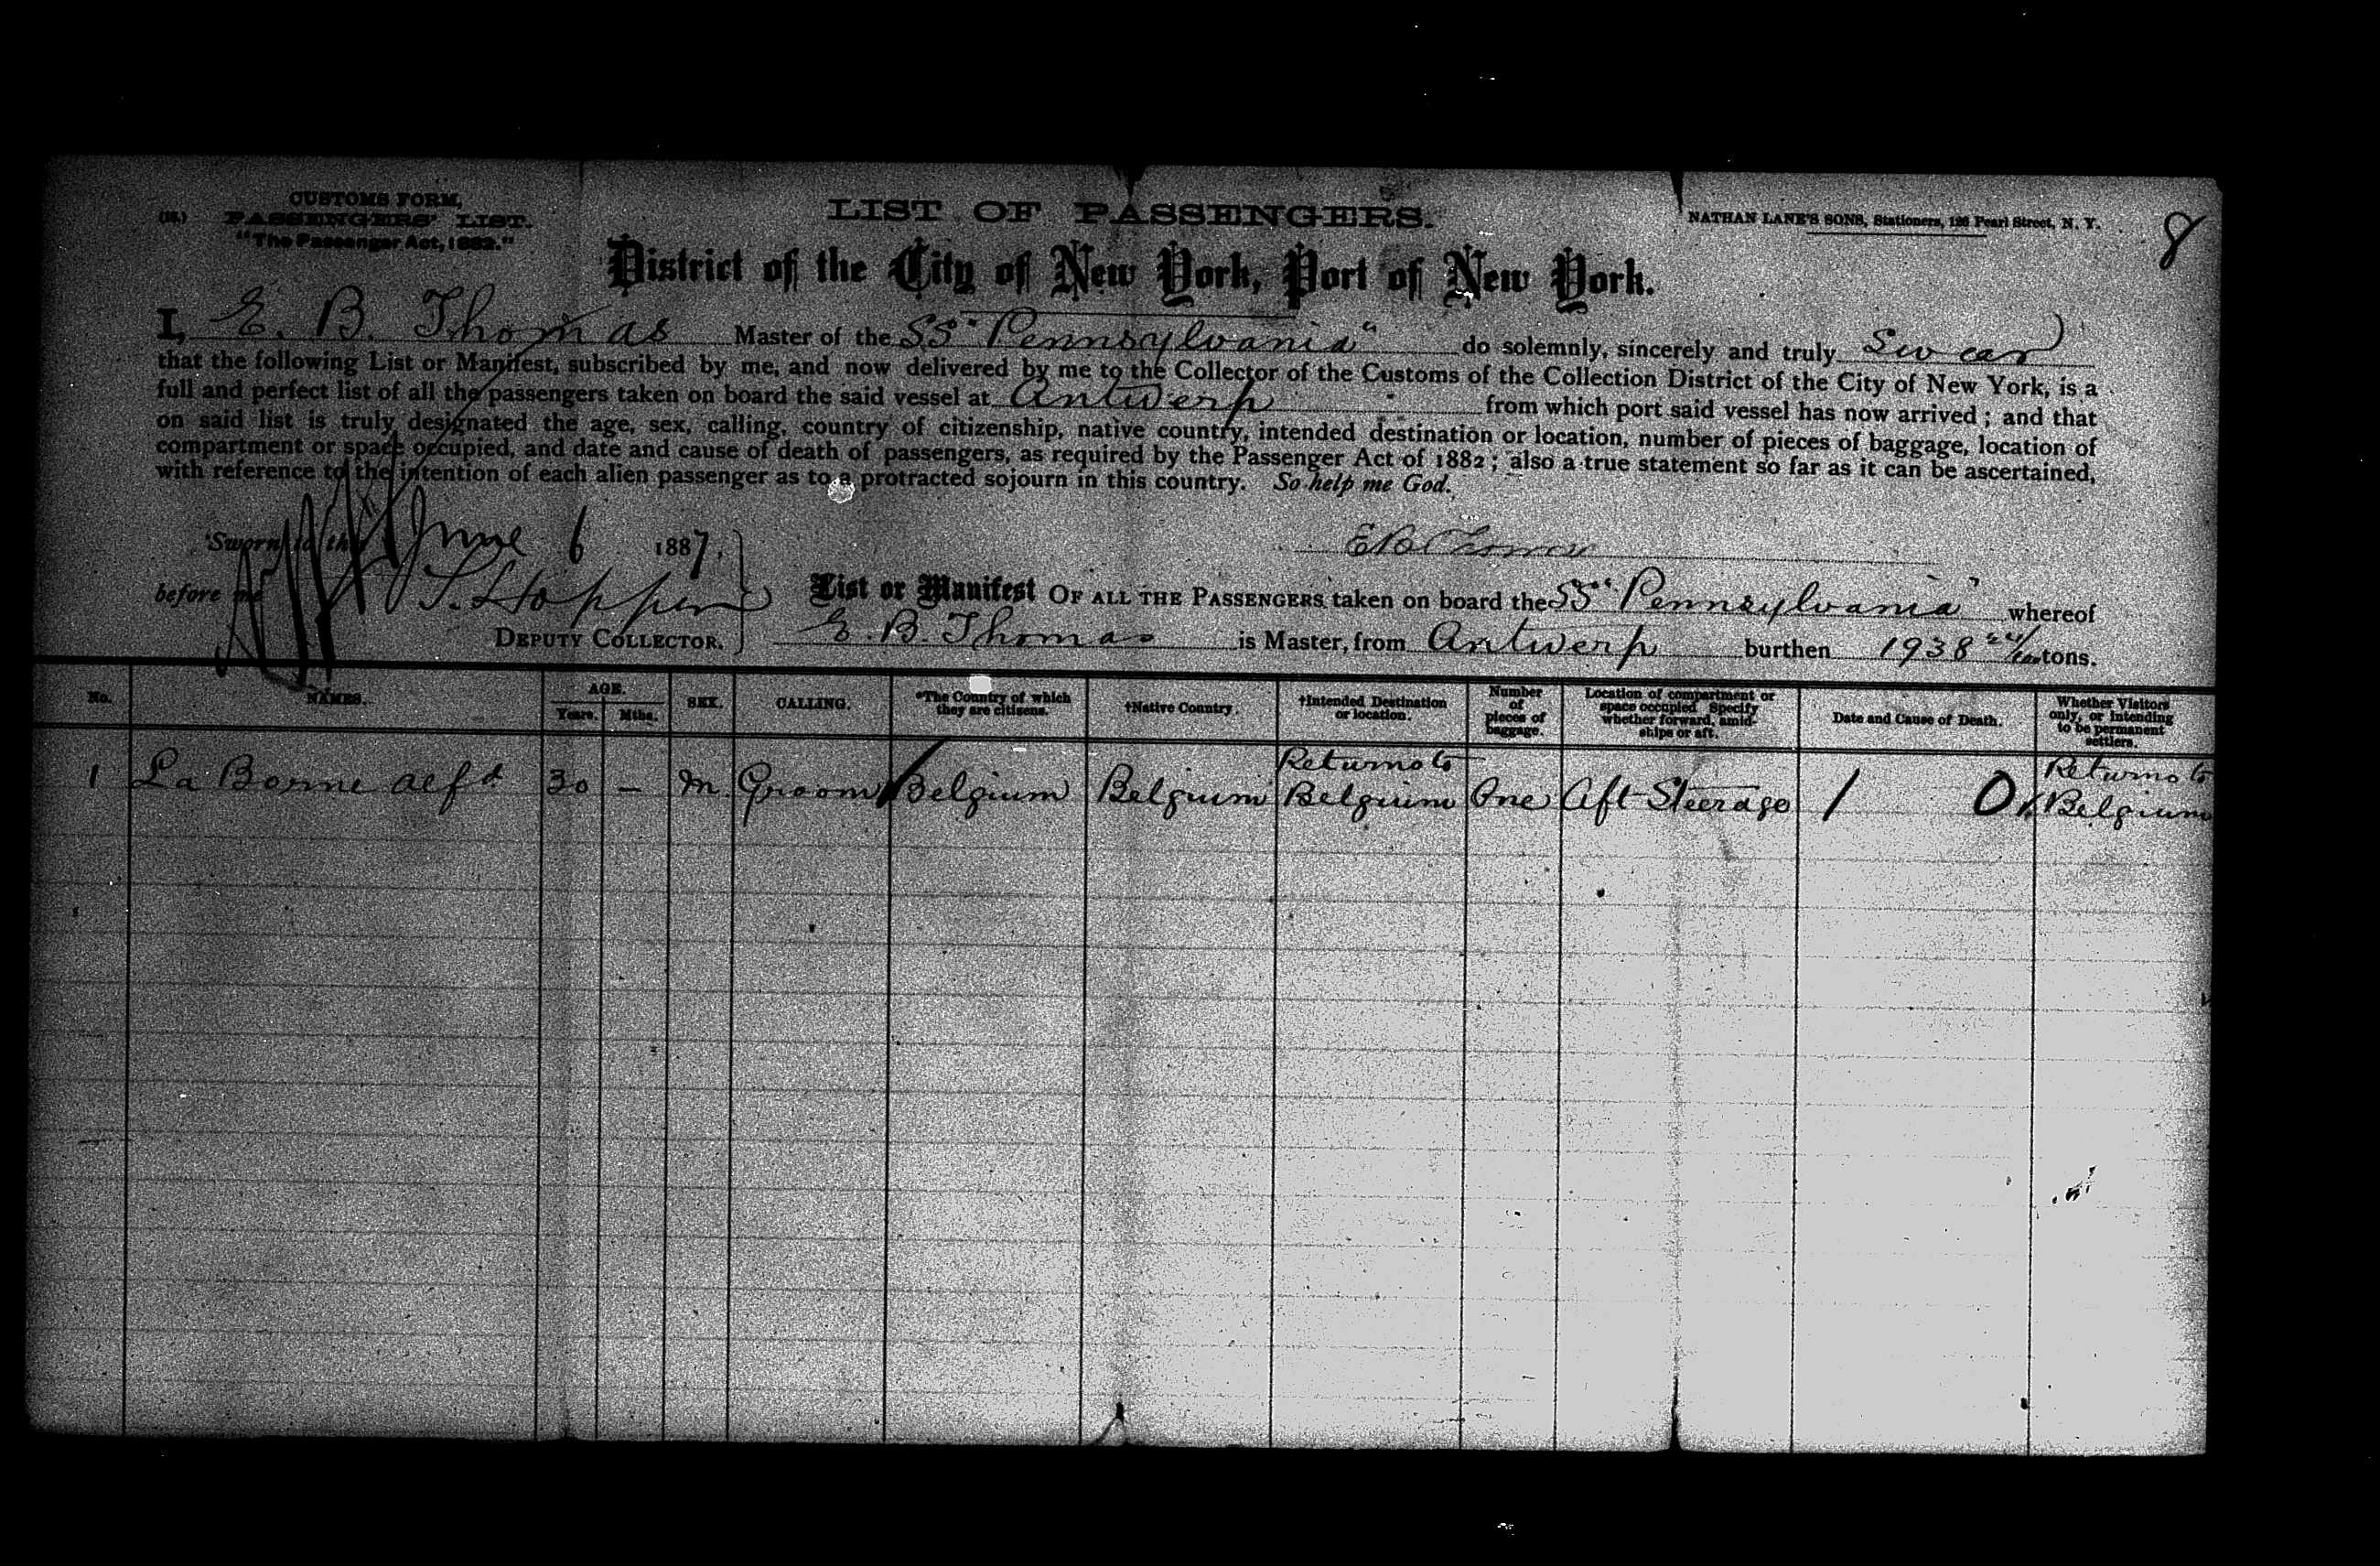 CUSTOMS FORM,
PASSENGERS' LIST.
"The Passenger Act, 1882."
LIST OF PASSENGERS.
NATHAN LANE'S SONS, Stationers, 126 Pearl Street, N. Y.
8
District of the City of New York, Port of New York.
I, E. B. Thomas Master of the SS "Pennsylvania" do solemnly, sincerely and truly Swear
that the following List or Manifest, subscribed by me, and now delivered by me to the Collector of the Customs of the Collection District of the City of New York, is a
full and perfect list of all the passengers taken on board the said vessel at Antwerp from which port said vessel has now arrived; and that
on said list is truly designated the age, sex, calling, country of citizenship, native country, intended destination or location, number of pieces of baggage, location of
compartment or space occupied, and date and cause of death of passengers, as required by the Passenger Act of 1882; also a true statement so far as it can be ascertained,
with reference to the intention of each alien passenger as to a protracted sojourn in this country. So help me God.
Sworn to this June 6 1887.
E B Thomas
before me
List or Manifest OF ALL THE PASSENGERS taken on board the SS "Pennsylvania" whereof
DEPUTY COLLECTOR.
E. B. Thomas is Master, from Antwerp burthen 1938 tons.
No. NAMES. AGE. Years. Mths. SEX. CALLING. *The Country of which they are citizens. †Native Country. †Intended Destination or location. Number of pieces of baggage. Location of compartment or space occupied Specify whether forward, amidships or aft. Date and Cause of Death. Whether Visitors only, or intending to be permanent settlers.
1 La Borne Alfd 30 — M. Groom Belgium Belgium Returns to Belgium One Aft Steerage / 0/. Returns to Belgium